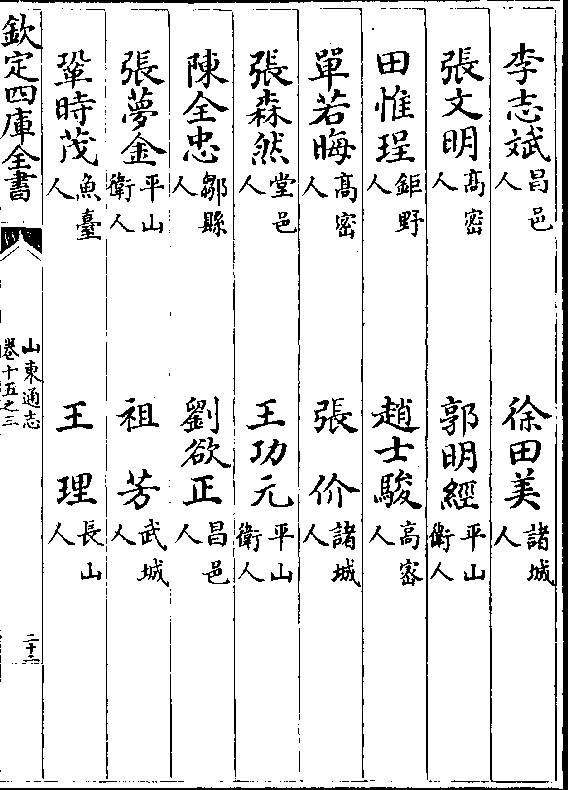 李志斌昌邑人　徐田美諸城人
張文明高密人　郭明經平山衛人
田惟珵鉅野人　趙士駿高密人
單若晦高密人　張　价諸城人
張森然堂邑人　王功元平山衛人
陳全忠鄒縣人　劉欲正昌邑人
張夢金平山衛人　祖　芳武城人
鞏時茂魚臺人　王　理長山人
欽定四庫全書　山東通志卷十五之三　二十二